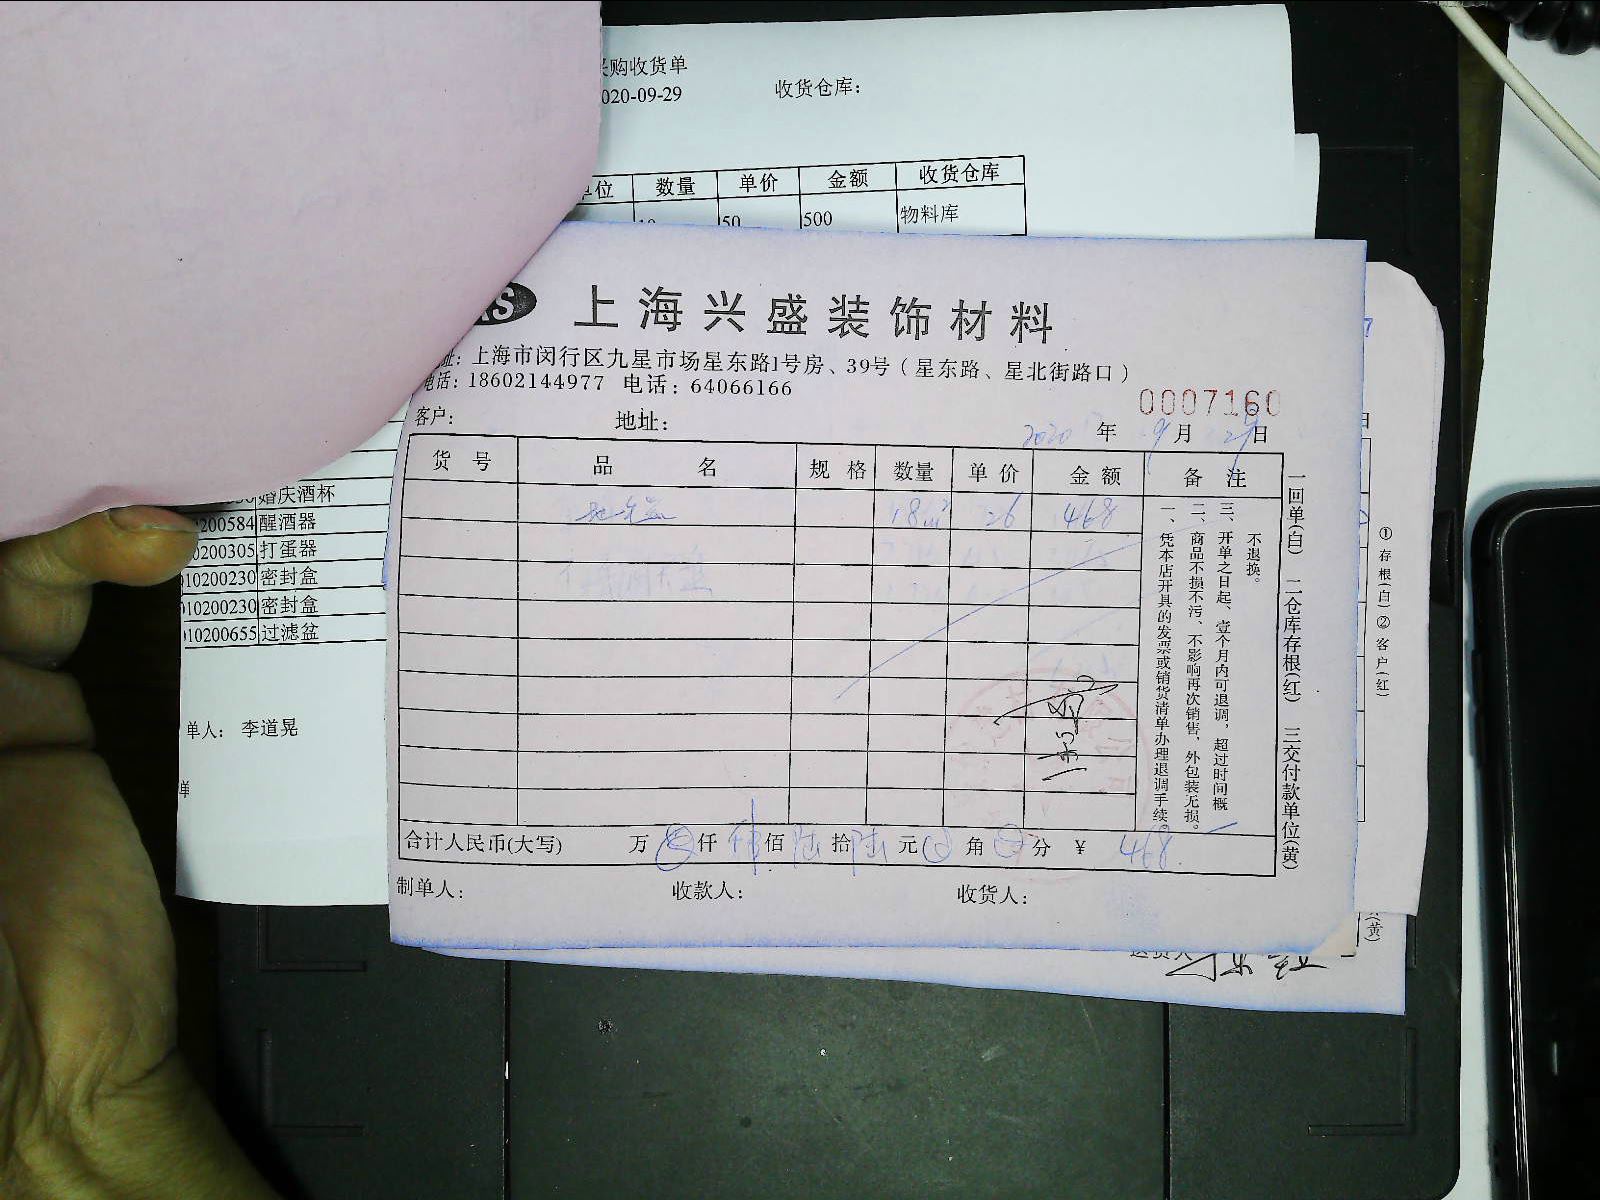 购收货单
020-09-29 收货仓库：
位 数量 单价 金额 收货仓库
50 500 物料库
上海兴盛装饰材料
址：上海市闵行区九星市场星东路1号房、39号（星东路、星北街路口）
电话：18602144977 电话：64066166
0007160
客户： 地址：
2020 年 9 月 29 日
货号 品名 规格 数量 单价 金额 备注
18m² 26 468
一、凭本店开具的发票或销货清单办理退调手续。
二、商品不损不污、不影响再次销售、外包装无损。
三、开单之日起、壹个月内可退调，超过时间概
不退换。
一回单(白) 二仓库存根(红) 三交付款单位(黄)
合计人民币(大写) 万 仟 佰 陆 拾 元 角 分 ¥ 468
制单人： 收款人： 收货人：
婚庆酒杯
200584 醒酒器
0200305 打蛋器
10200230 密封盒
10200230 密封盒
10200655 过滤盆
单人： 李道晃
单
①存根(白)②客户(红)
日
(黄)